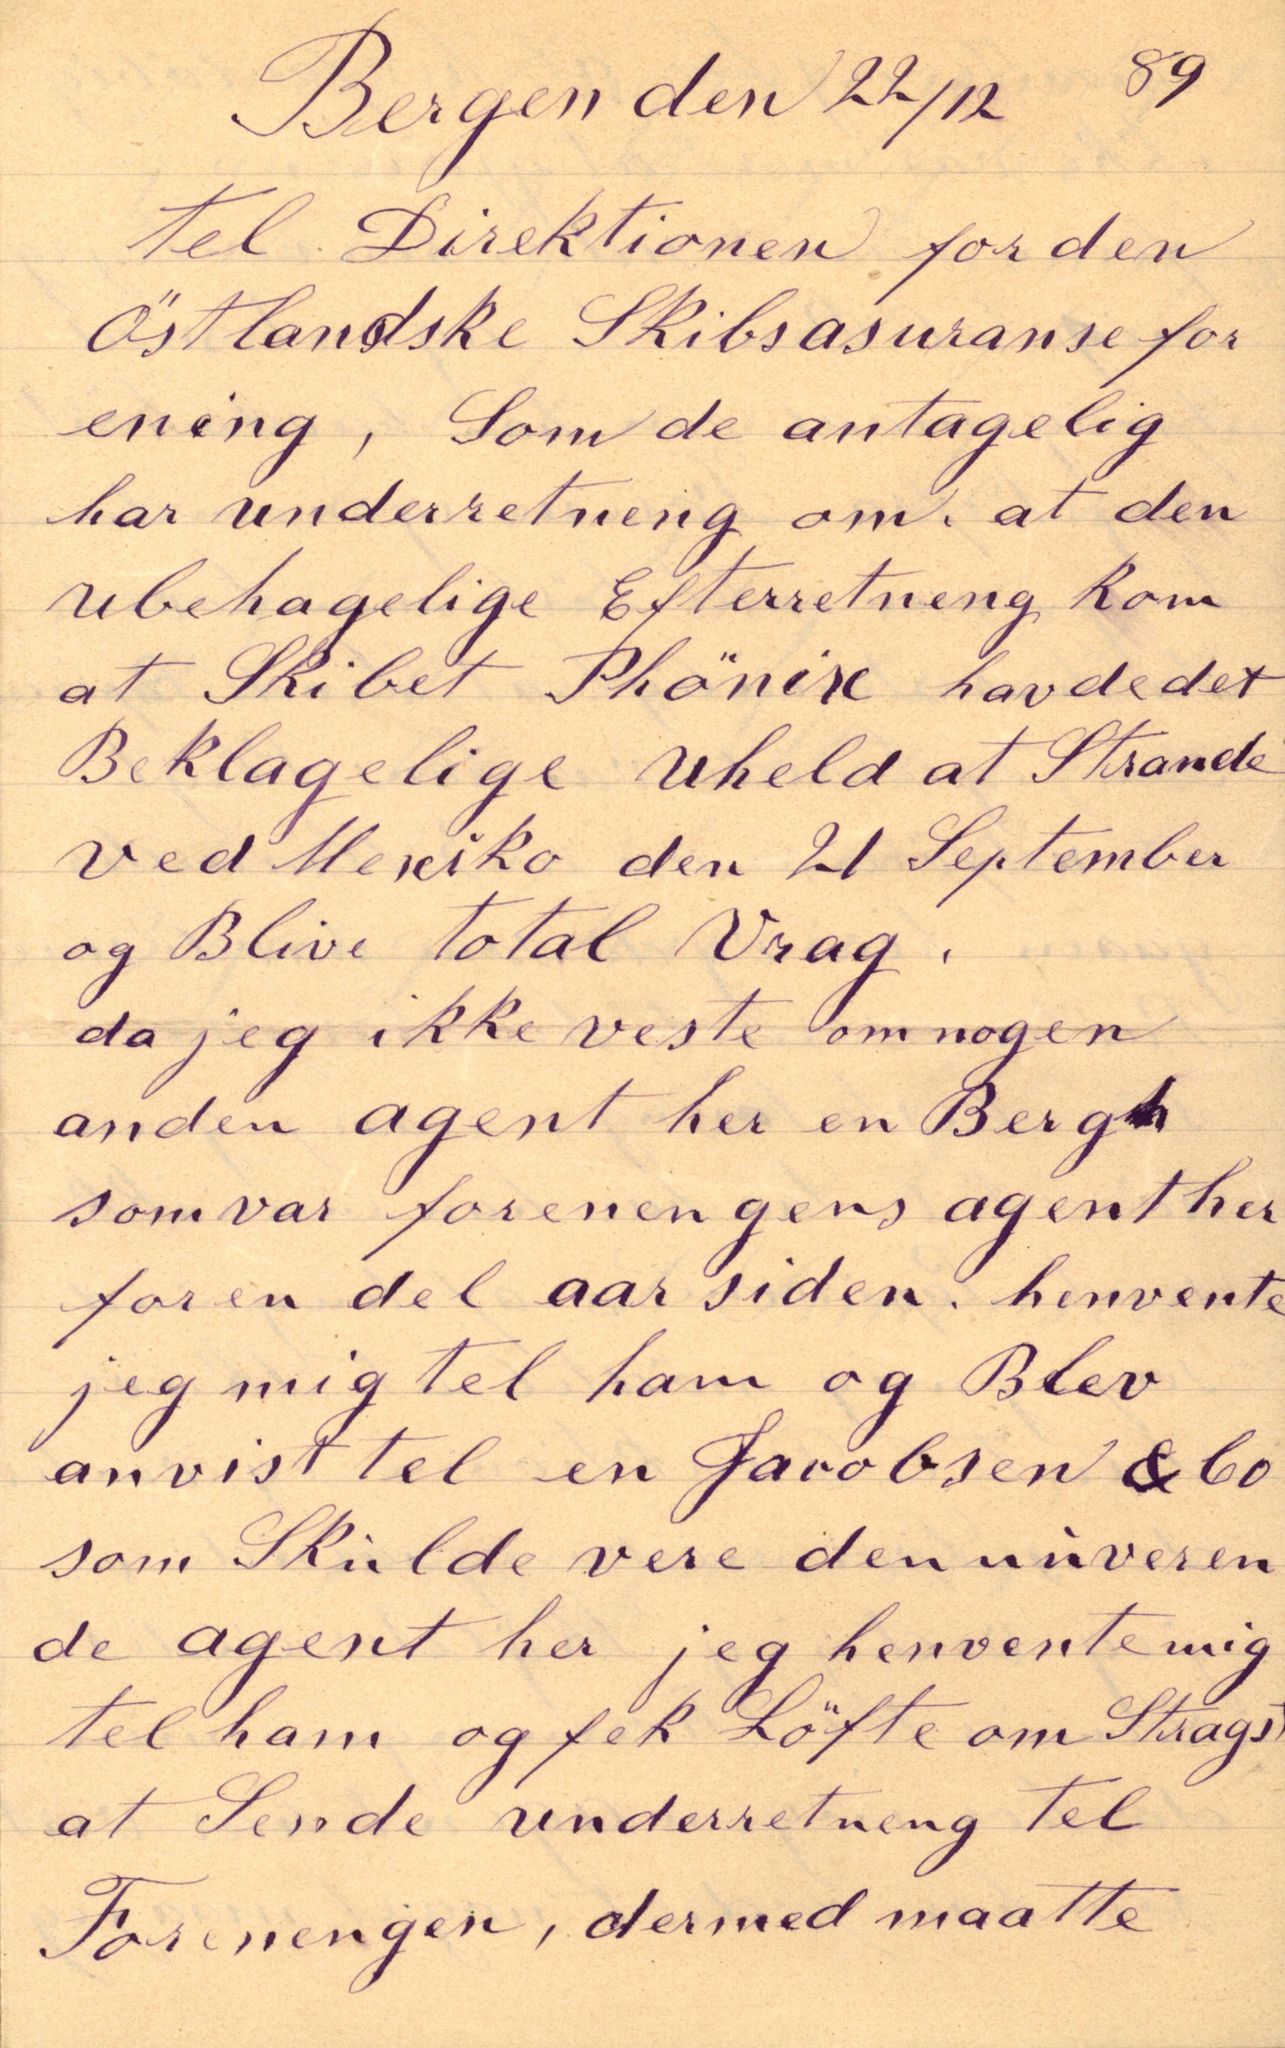 Bergen den 22/12 89
tel Direktionen for den
Östlandske Skibsasuranse for
ening, Som de antagelig
har underretneng om. at den
ubehagelige Efterretneng kom
at Skibet Phönix havde det
Beklagelige Uheld at Strande
ved Mexiko den 21 September
og Blive total Vrag.
da jeg ikke veste om nogen
anden agent her en Bergh
som var forenengens agent her
for en del aar siden. henvente
jeg mig tel ham og Blev
anvist tel en Jacobsen & Co
som Skulde vere den nuveren
de agent her jeg henvente mig
tel ham og fek Löfte om Strags
at Sende underretneng tel
Forenengen, dermed maatte